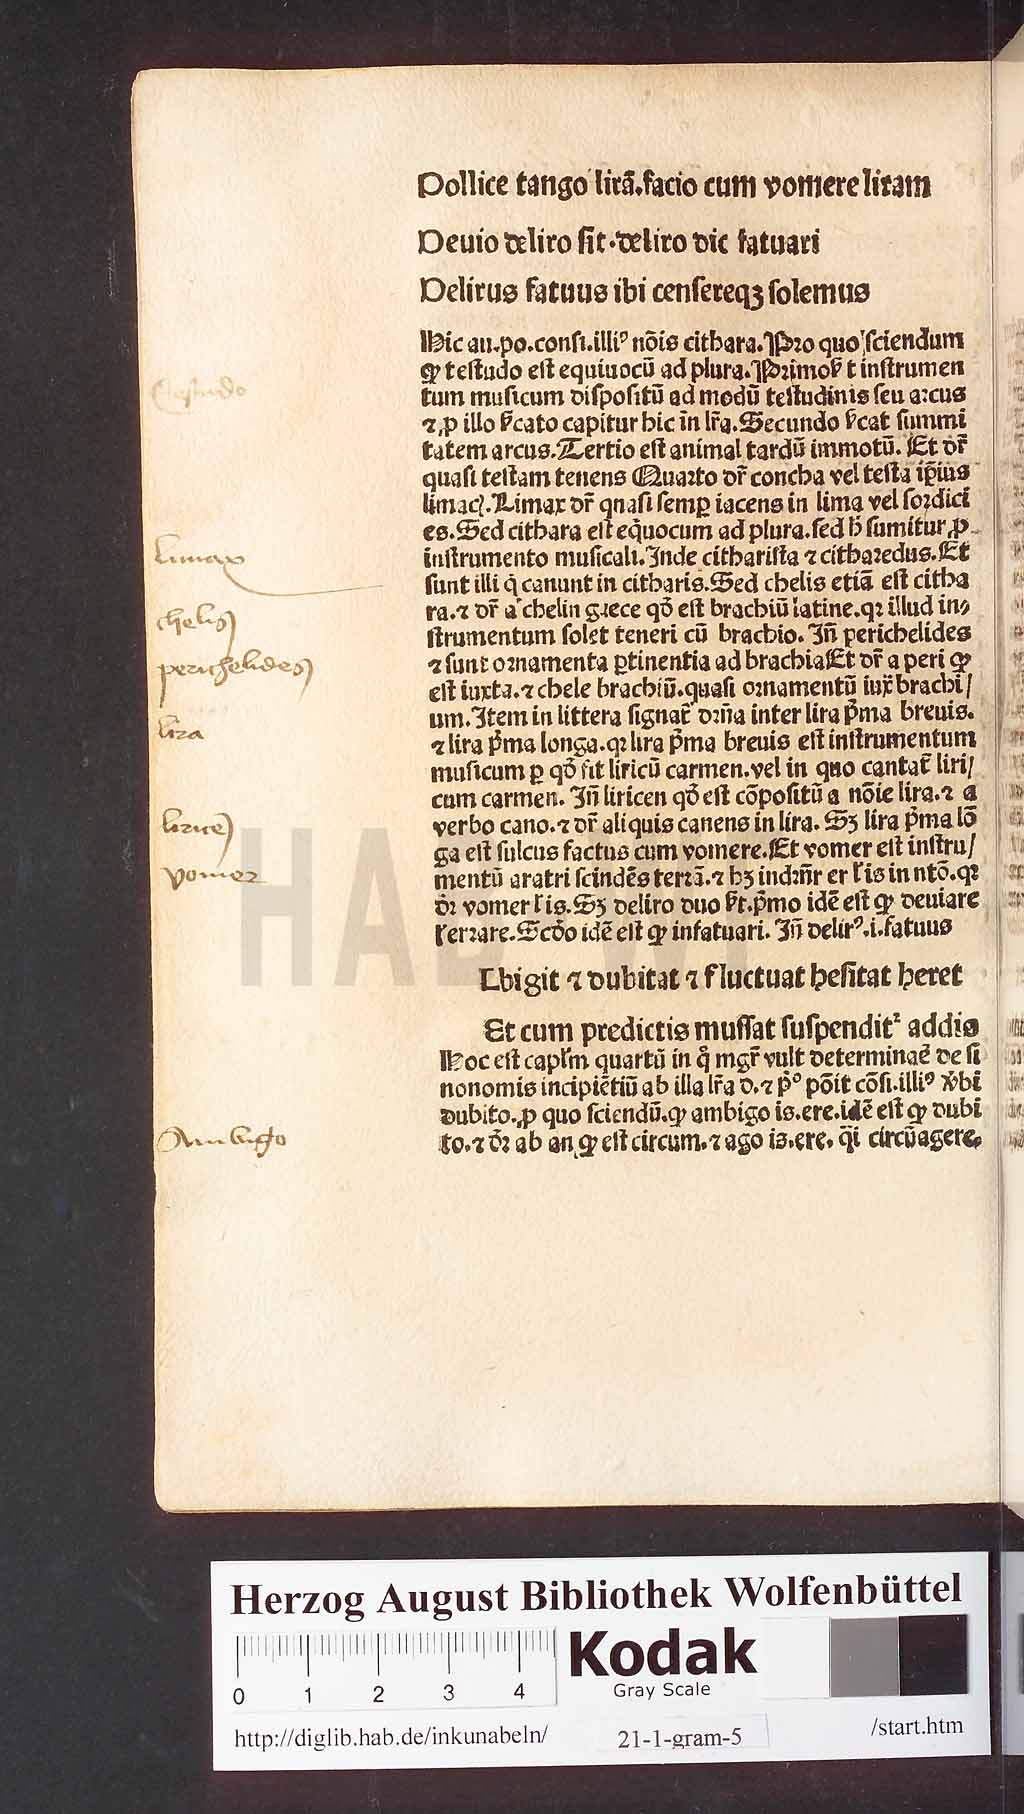 Pollice tango lirã.facio cum vomere liram
Deuio deliro sit.deliro dic fatuari
Delirus fatuus ibi censereqꝫ solemus
Hic au.po.consi.illiꝰ nõis cithara.Pro quo sciendum
ꝙ testudo est equiuocũ ad plura.Primo t instrumen
tum musicum dispositũ ad modũ testudinis seu arcus
⁊ ꝓ illo cato capitur hic in lr̃a.Secundo cat summi
tatem arcus.Tertio est animal tardũ immotũ. Et dr̃
quasi testam tenens Quarto dr̃ concha vel testa ip̃ius
limac.Limax dr̃ qnasi semꝑ iacens in lima vel sordici
es.Sed cithara est eq̃uocum ad plura.sed h̃ sumitur ꝓ
instrumento musicali.Inde citharista ⁊ citharedus.Et
sunt illi q̃ canunt in citharis.Sed chelis etiã est citha
ra.⁊ dr̃ a chelin grece qd̃ est brachiũ latine.qꝛ illud in⸗
strumentum solet teneri cũ brachio. Iñ perichelides
⁊ sunt ornamenta ꝑtinentia ad brachia Et dr̃ a peri ꝙ
est iuxta.⁊ chele brachiũ.quasi ornamentũ iux̃ brachi/
um.Item in littera signat̃ dr̃na inter lira p̃ma breuis.
⁊ lira p̃ma longa.qꝛ lira p̃ma breuis est instrumentum
musicum ꝑ qd̃ fit liricũ carmen.vel in quo cantat̃ liri/
cum carmen. Iñ liricen qd̃ est cõpositũ a nõie lira.⁊ a
verbo cano.⁊ dr̃ aliquis canens in lira. Sꝫ lira p̃ma lõ
ga est sulcus factus cum vomere.Et vomer est instru/
mentũ aratri scindẽs terrã.⁊ hꝫ indr̃nr er is in ntõ.qꝛ
dr̃ vomer is.Sꝫ deliro duo t.p̃mo idẽ est ꝙ deuiare
errare.Scdo idẽ est ꝙ infatuari. Iñ delirꝰ.i.fatuus
Ambigit ⁊ dubitat ⁊ fluctuat hesitat heret
Et cum predictis mussat suspenditꝛ addis
Hoc est caplm quartũ in q̃ mgr̃ vult determinaẽ de si
nonomis incipiẽtiũ ab illa lr̃a d.⁊ p̃ᵒ põit cõsi.illiꝰ v̾bi
dubito.ꝓ quo sciendũ.ꝙ ambigo is.ere.idẽ est ꝙ dubi
to.⁊ dr̃ ab an ꝙ est circum.⁊ ago is.ere. q̃i circũagere.
Testudo
Limax
chelis
perichelides
lira
liricẽ
vomer
Ambigo
HAB WF
Herzog August Bibliothek Wolfenbüttel
0 1 2 3 4
Kodak
Gray Scale
http://diglib.hab.de/inkunabeln/
21-1-gram-5
/start.htm